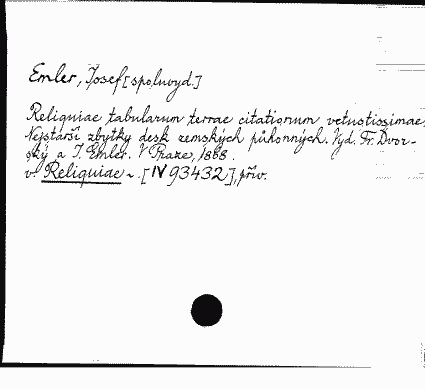 Emler, Josef [spoluvyd.]
Reliquiae tabularum terrae citationum vetustissimae.
Nejstarší zbytky desk zemských půhonných. Vyd. Fr. Dvor-
ský a J. Emler. V Praze, 1868.
v. Reliquiae ~ [IV 93432], přív.